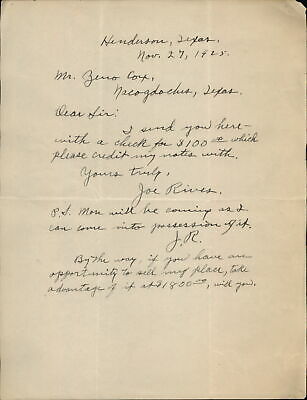 Henderson, Texas,
Nov. 27, 1925.
Mr. Zeno Cox,
Nacogdoches, Texas.
Dear Sir:
I send you here-
with a check for $100 00 which
please credit my notes with.
Yours truly,
Joe Rives.
P.S. More will be coming as I
can come into possession of it.
J.R.
By the way, if you have an
opportunity to sell my place, take
advantage of it at $1800.00, will you.